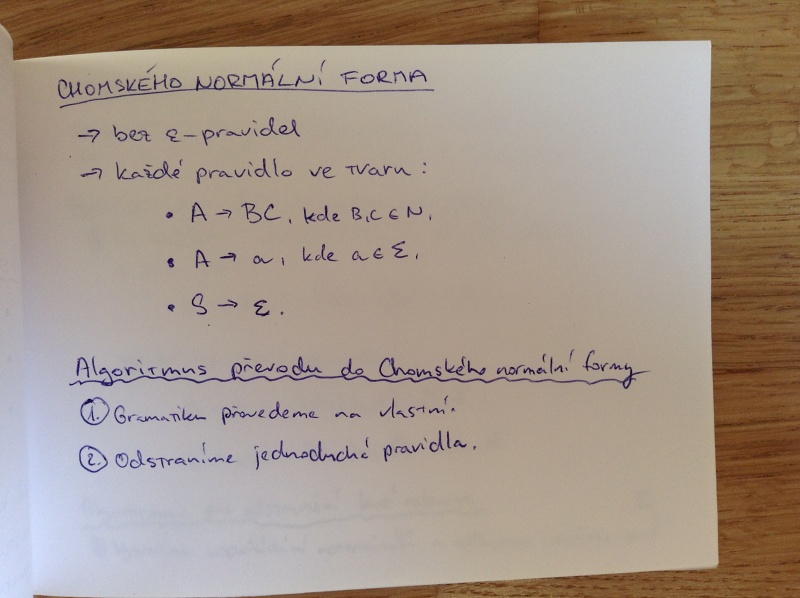 CHOMSKÉHO NORMÁLNÍ FORMA
→ bez ε-pravidel
→ každé pravidlo ve tvaru:
• A → BC, kde B,C ∈ N,
• A → a, kde a ∈ Σ,
• S → ε.
Algoritmus převodu do Chomského normální formy
1. Gramatiku převedeme na vlastní.
2. Odstraníme jednoduchá pravidla.